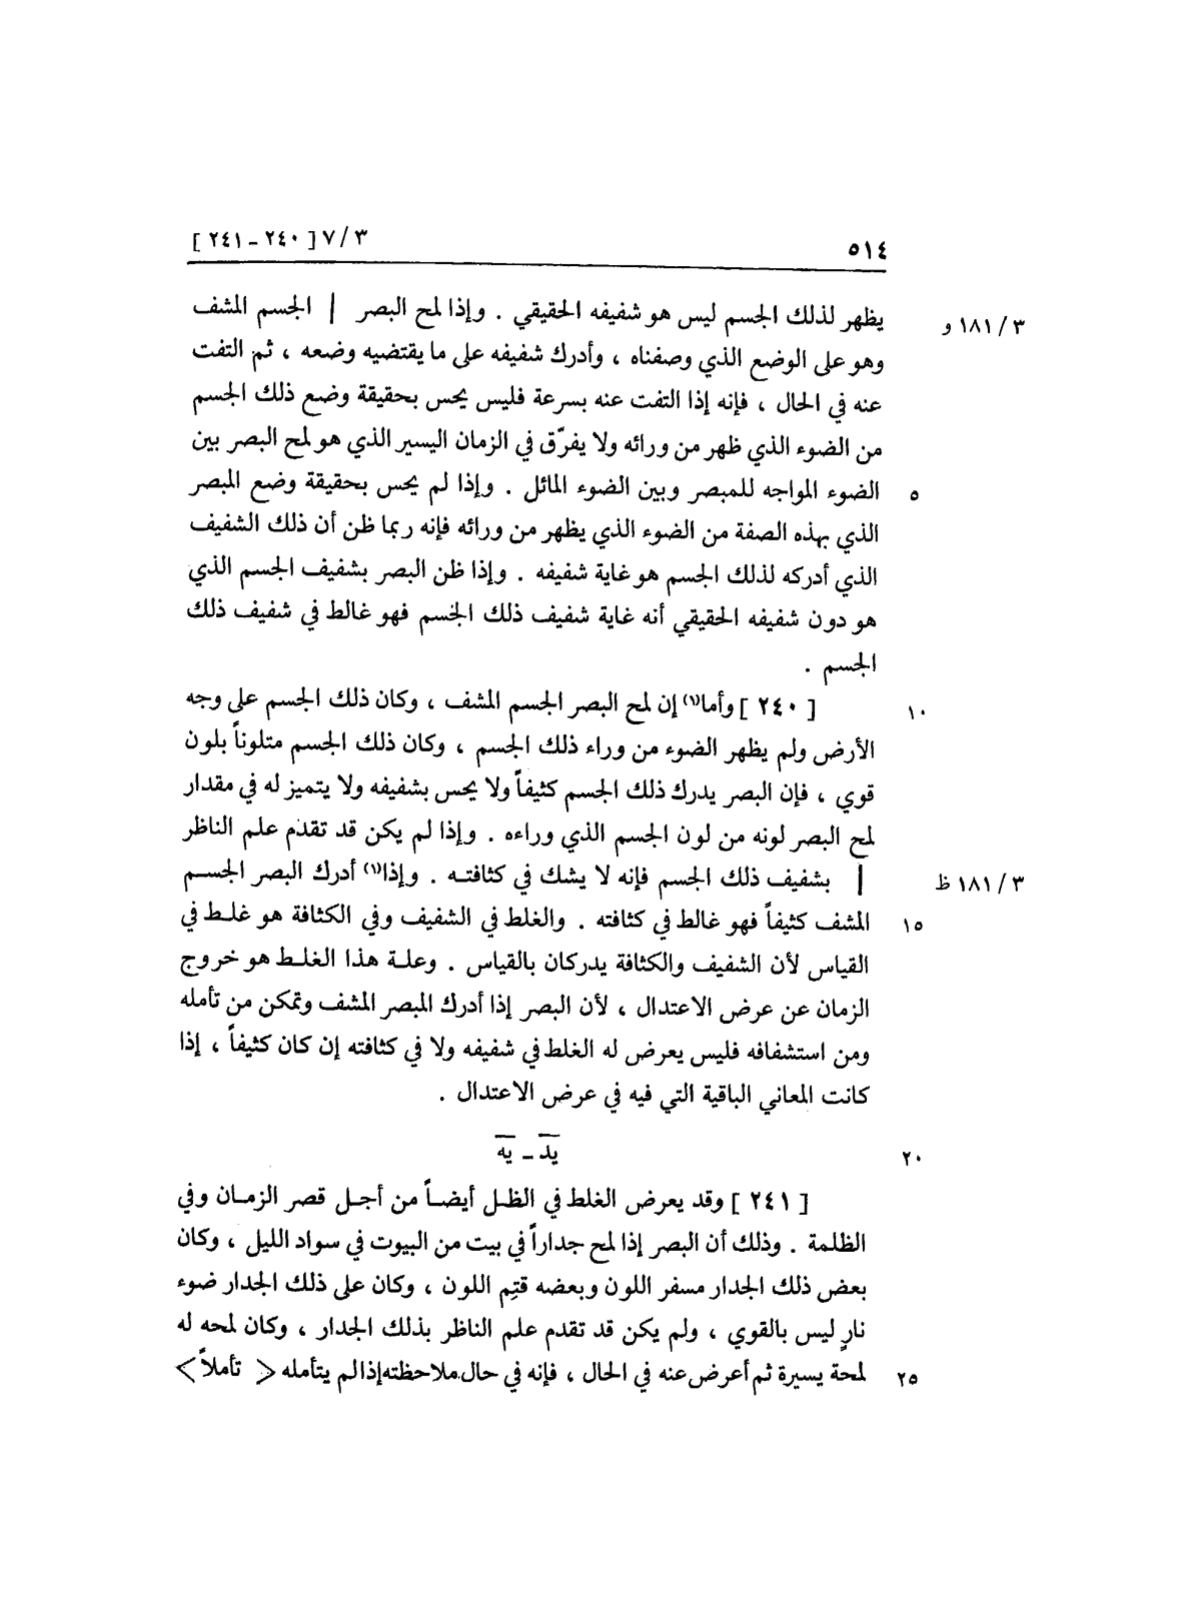 ٥١٤ ٣ / ٧ [ ٢٤٠ – ٢٤١ ]
٣ / ١٨١ و يظهر لذلك الجسم ليس هو شفيفه الحقيقي . وإذا لمح البصر | الجسم المشف
وهو على الوضع الذي وصفناه ، وأدرك شفيفه على ما يقتضيه وضعه ، ثم التفت
عنه في الحال ، فإنه إذا التفت عنه بسرعة فليس يحس بحقيقة وضع ذلك الجسم
من الضوء الذي ظهر من ورائه ولا يفرّق في الزمان اليسير الذي هو لمح البصر بين
٥ الضوء المواجه للمبصر وبين الضوء المائل . وإذا لم يحس بحقيقة وضع المبصر
الذي بهذه الصفة من الضوء الذي يظهر من ورائه فإنه ربما ظن أن ذلك الشفيف
الذي أدركه لذلك الجسم هو غاية شفيفه . وإذا ظن البصر بشفيف الجسم الذي
هو دون شفيفه الحقيقي أنه غاية شفيف ذلك الجسم فهو غالط في شفيف ذلك
الجسم .
١٠ [ ٢٤٠ ] وأما(١) إن لمح البصر الجسم المشف ، وكان ذلك الجسم على وجه
الأرض ولم يظهر الضوء من وراء ذلك الجسم ، وكان ذلك الجسم متلوناً بلون
قوي ، فإن البصر يدرك ذلك الجسم كثيفاً ولا يحس بشفيفه ولا يتميز له في مقدار
لمح البصر لونه من لون الجسم الذي وراءه . وإذا لم يكن قد تقدم علم الناظر
٣ / ١٨١ ظ | بشفيف ذلك الجسم فإنه لا يشك في كثافتـه . وإذا(١) أدرك البصر الجسـم
١٥ المشف كثيفاً فهو غالط في كثافته . والغلط في الشفيف وفي الكثافة هو غلـط في
القياس لأن الشفيف والكثافة يدركان بالقياس . وعلـة هذا الغلـط هو خروج
الزمان عن عرض الاعتدال ، لأن البصر إذا أدرك المبصر المشف وتمكن من تأمله
ومن استشفافه فليس يعرض له الغلط في شفيفه ولا في كثافته إن كان كثيفاً ، إذا
كانت المعاني الباقية التي فيه في عرض الاعتدال .
٢٠ يد – يه
[ ٢٤١ ] وقد يعرض الغلط في الظـل أيضـاً من أجـل قصر الزمـان وفي
الظلمة . وذلك أن البصر إذا لمح جداراً في بيت من البيوت في سواد الليل ، وكان
بعض ذلك الجدار مسفر اللون وبعضه قتِم اللون ، وكان على ذلك الجدار ضوء
نارٍ ليس بالقوي ، ولم يكن قد تقدم علم الناظر بذلك الجدار ، وكان لمحه له
٢٥ لمحة يسيرة ثم أعرض عنه في الحال ، فإنه في حال ملاحظته إذا لم يتأمله < تأملاً >